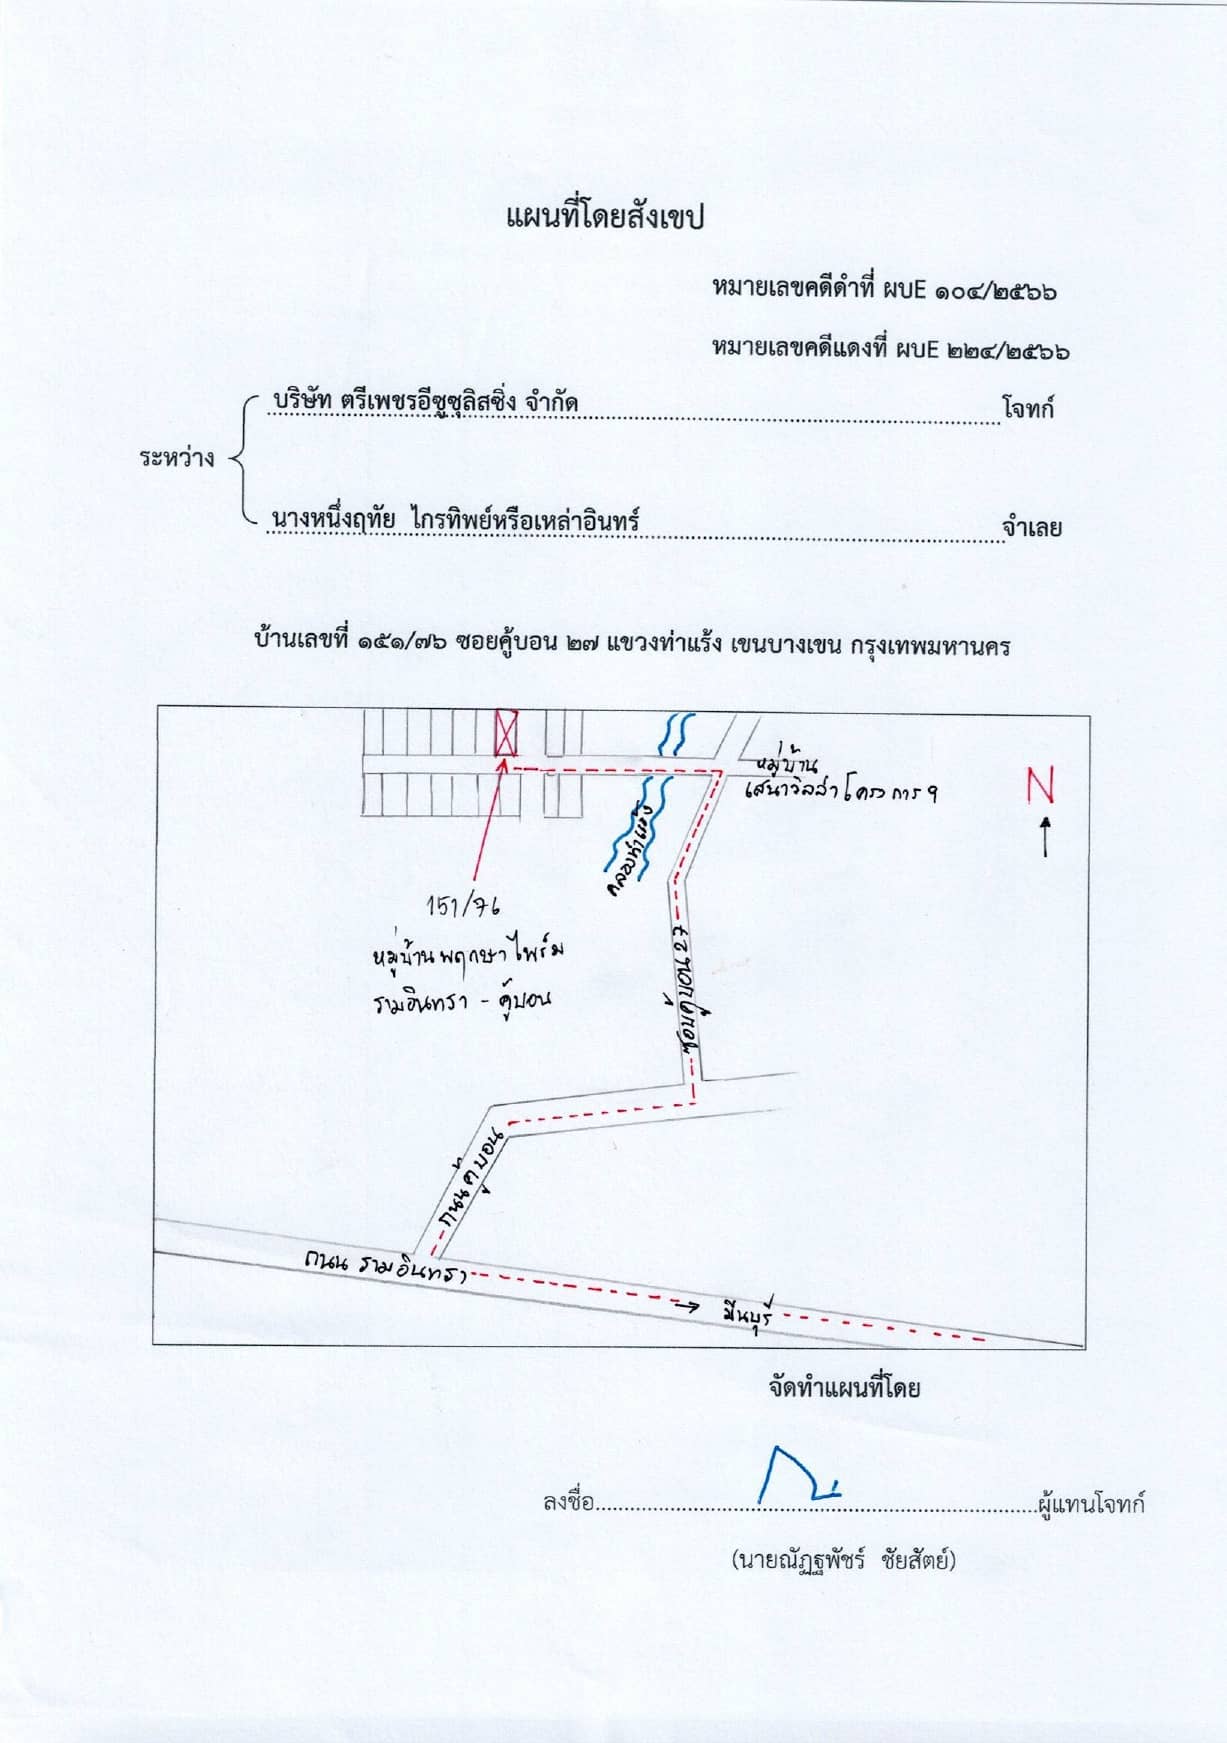 แผนที่โดยสังเขป
หมายเลขคดีดำที่ ผบE ๑๐๔/๒๕๖๖
หมายเลขคดีแดงที่ ผบE ๒๒๔/๒๕๖๖
บริษัท ตรีเพชรอีซูซุลิสซิ่ง จำกัด โจทก์
ระหว่าง
นางหนึ่งฤทัย ไกรทิพย์หรือเหล่าอินทร์ จำเลย
บ้านเลขที่ ๑๕๑/๗๖ ซอยคู้บอน ๒๗ แขวงท่าแร้ง เขนบางเขน กรุงเทพมหานคร
หมู่บ้าน
เสนาวิลล่า โครงการ 9
N
คลองท่าแร้ง
151/76
หมู่บ้าน พฤกษา ไพร์ม
รามอินทรา - คู้บอน
ซอยคู้บอน 27
ถนนคู้บอน
ถนน รามอินทรา
มีนบุรี
จัดทำแผนที่โดย
ลงชื่อ ผู้แทนโจทก์
(นายณัฏฐพัชร์ ชัยสัตย์)